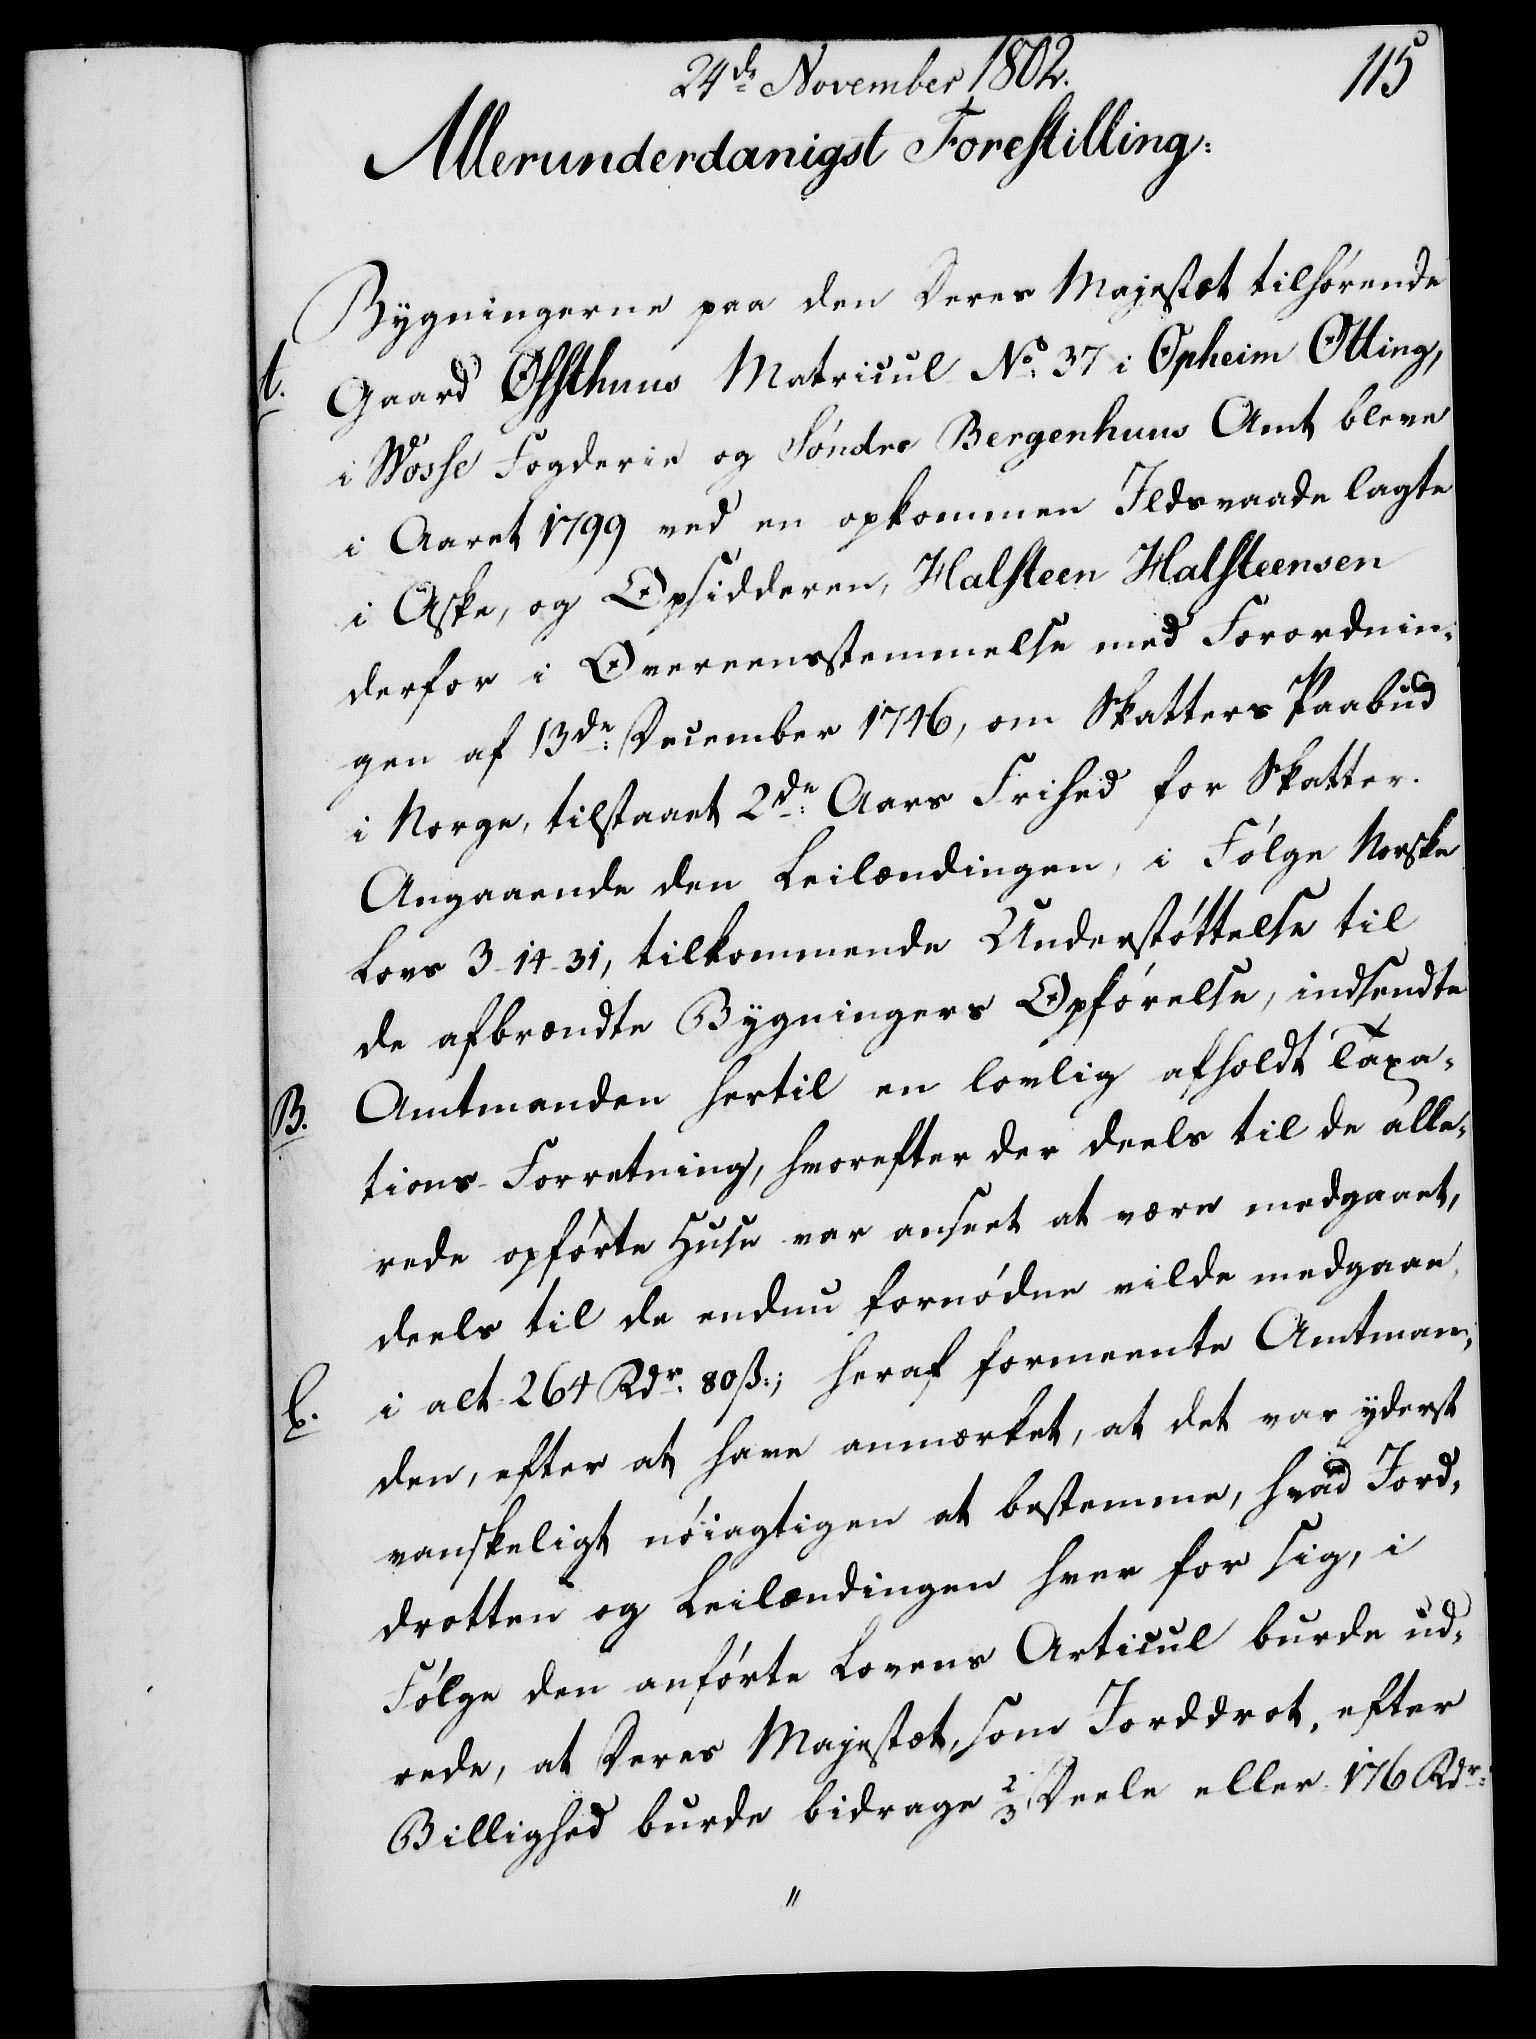 24de November 1802.
115
Allerunderdanigst Forestilling:
Bygningerne paa den Deres Majestæt tilhørende
A. Gaard Øfsthuus Matricul No. 37 i Opheim Otting,
i Wosse Fogderie og Søndre Bergenhuus Amt bleve
i Aaret 1799 ved en opkommen Ildsvaade lagte
i Aske, og Opsidderen, Halsteen Halsteensen
derfor i Overeensstemmelse med Forordnin-
gen af 13de December 1746, om Skatters Paabud
i Norge, tilstaaet 2de Aars Frihed for Skatter.
Angaaende den Leilændingen, i Følge Norske
Lovs 3-14-31, tilkommende Understøttelse til
de afbrændte Bygningers Opførelse, indsendte
B. Amtmanden hertil en lovlig afholdt Taxa-
tions-Forretning, hvorefter der deels til de alle-
rede opførte Huse var anseet at være medgaaet,
deels til de endnu fornødne vilde medgaae,
C. i alt 264 Rdr. 80ß.; heraf formeente Amtman-
den, efter at have anmærket, at det var yderst
vanskeligt nøiagtigen at bestemme, hvad Jord-
drotten og Leilændingen hver for sig, i
Følge den anførte Lovens Articul burde ud-
rede, at Deres Majestæt, som Jorddrot, efter
Billighed burde bidrage 2/3 Deele eller 176 Rdr:
"